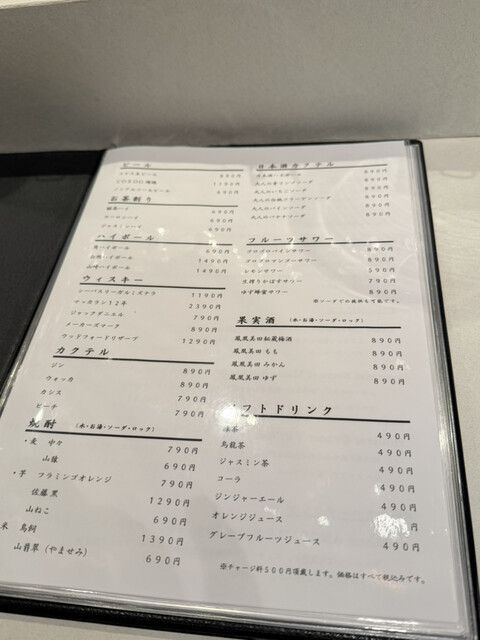 ビール
890円
1190円
690円
お茶割り
690円
690円
690円
ハイボール
角ハイボール 690円
1490円
山崎ハイボール 1490円
ウィスキー
シーバスリーガルミズナラ 1190円
マッカラン12年 2390円
ジャックダニエル 790円
メーカーズマーク 890円
ウッドフォードリザーブ 1290円
カクテル
ジン 890円
ウォッカ 890円
カシス 790円
ピーチ 790円
焼酎 (水・お湯・ソーダ・ロック)
・麦 中々 790円
山猿 690円
・芋 フラミンゴオレンジ 790円
佐藤 黒 1290円
山ねこ 690円
米 鳥飼 1390円
山翡翠(やませみ) 690円
日本酒カクテル
890円
890円
890円
890円
890円
フルーツサワー
ゴロゴロパインサワー 890円
ゴロゴロマンゴーサワー 890円
レモンサワー 590円
生搾りかぼすサワー 790円
ゆず蜂蜜サワー 890円
果実酒 (水・お湯・ソーダ・ロック)
鳳凰美田秘蔵梅酒 890円
鳳凰美田 もも 890円
鳳凰美田 みかん 890円
鳳凰美田 ゆず 890円
フトドリンク
緑茶 490円
烏龍茶 490円
ジャスミン茶 490円
コーラ 490円
ジンジャーエール 490円
オレンジジュース 490円
グレープフルーツジュース 490円
※チャージ料500円頂戴します。価格はすべて税込みです。